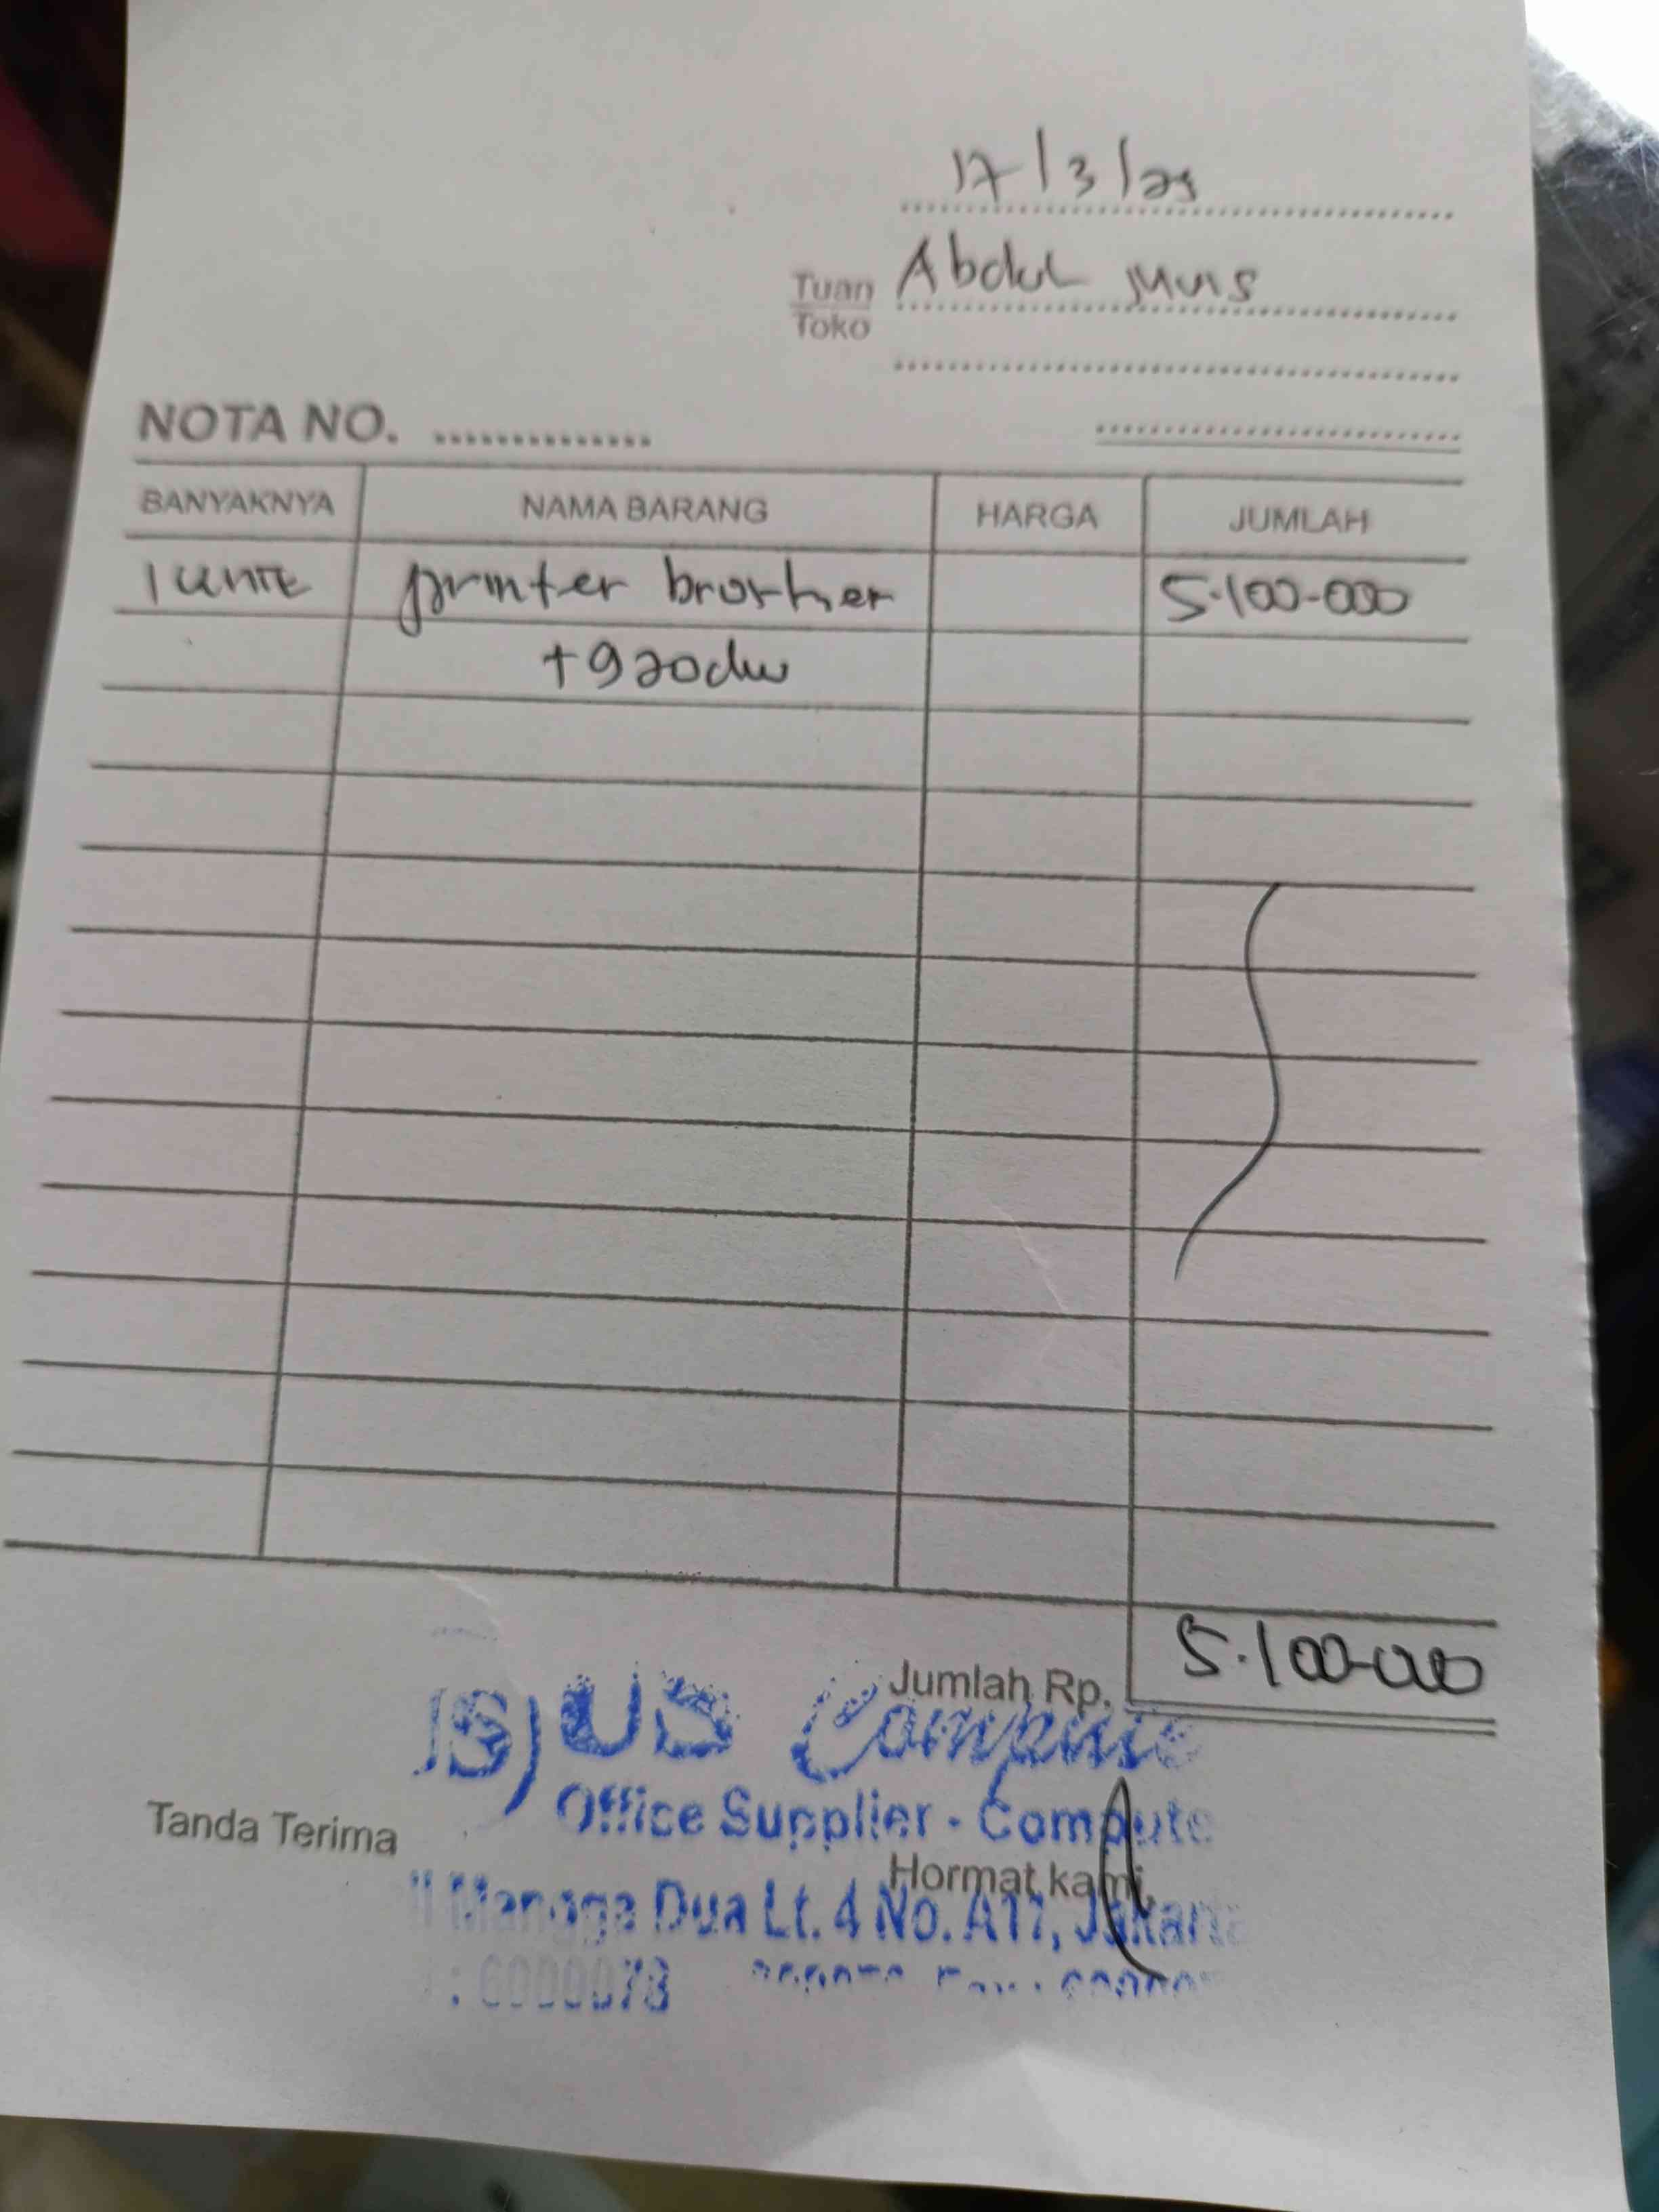 17/3/25
Tuan Abdul Muis
Toko
NOTA NO.
BANYAKNYA NAMA BARANG HARGA JUMLAH
1 unit printer brother 5.100.000
t920dw
Jumlah Rp. 5.100.000
US Compute
Office Supplier - Compute
Tanda Terima
Hormat kami,
Mangga Dua Lt. 4 No. A17, Jakarta